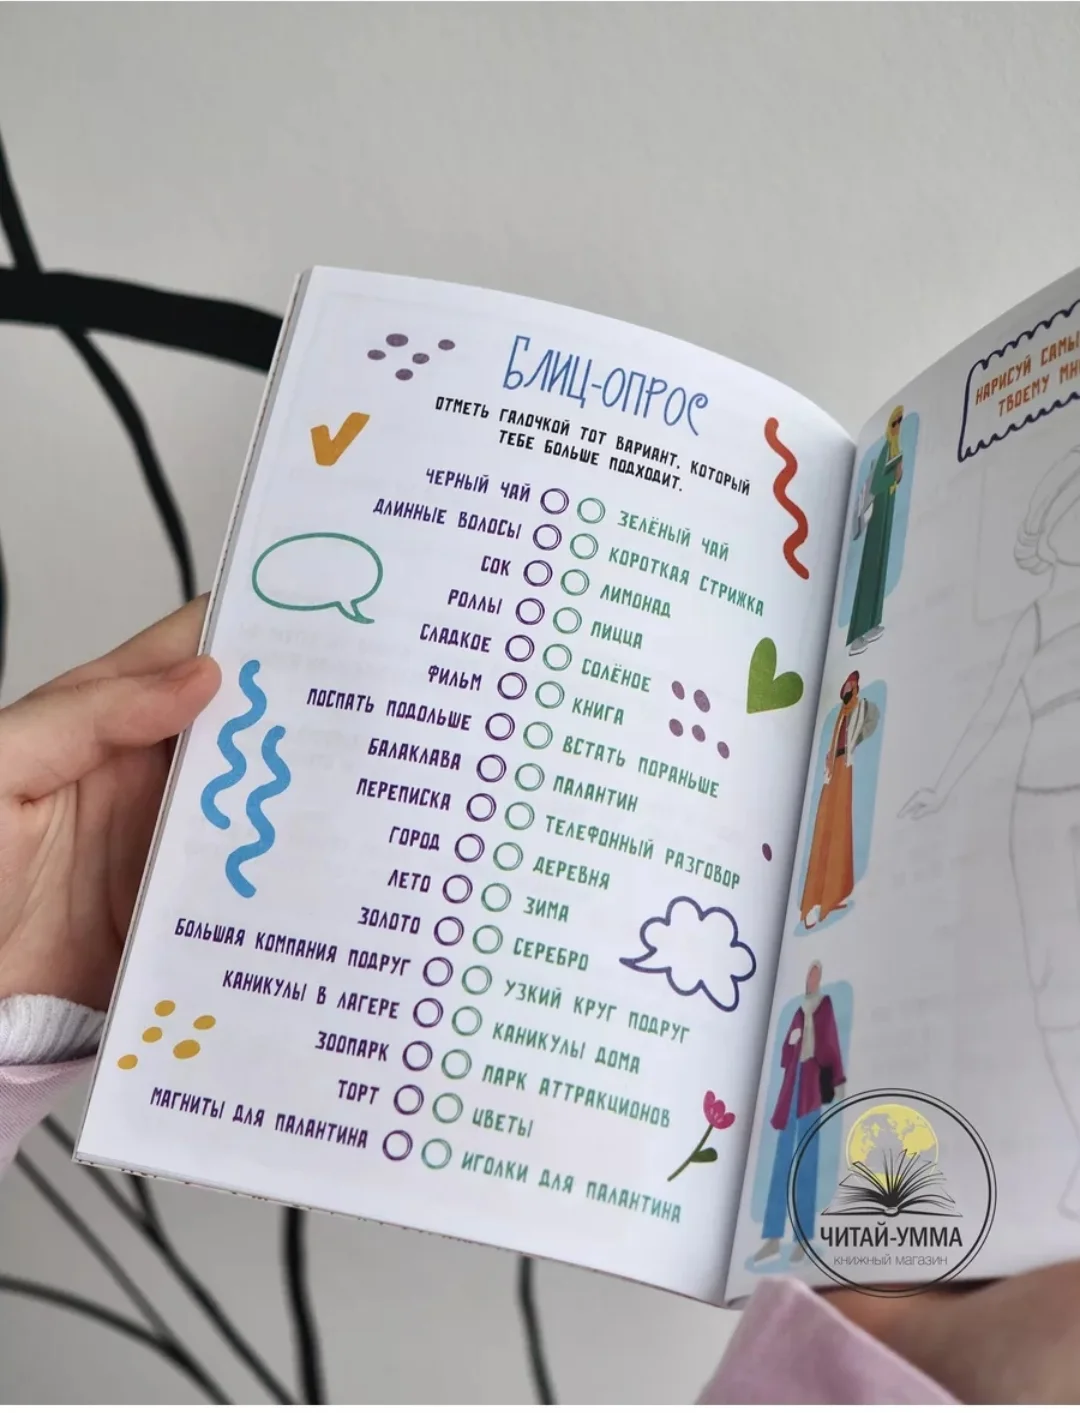 БЛИЦ-ОПРОС
ОТМЕТЬ ГАЛОЧКОЙ ТОТ ВАРИАНТ, КОТОРЫЙ
ТЕБЕ БОЛЬШЕ ПОДХОДИТ.
ЧЕРНЫЙ ЧАЙ ЗЕЛЁНЫЙ ЧАЙ
ДЛИННЫЕ ВОЛОСЫ КОРОТКАЯ СТРИЖКА
СОК ЛИМОНАД
РОЛЛЫ ПИЦЦА
СЛАДКОЕ СОЛЁНОЕ
ФИЛЬМ КНИГА
ПОСПАТЬ ПОДОЛЬШЕ ВСТАТЬ ПОРАНЬШЕ
БАЛАКЛАВА ПАЛАНТИН
ПЕРЕПИСКА ТЕЛЕФОННЫЙ РАЗГОВОР
ГОРОД ДЕРЕВНЯ
ЛЕТО ЗИМА
ЗОЛОТО СЕРЕБРО
БОЛЬШАЯ КОМПАНИЯ ПОДРУГ УЗКИЙ КРУГ ПОДРУГ
КАНИКУЛЫ В ЛАГЕРЕ КАНИКУЛЫ ДОМА
ЗООПАРК ПАРК АТТРАКЦИОНОВ
ТОРТ ЦВЕТЫ
МАГНИТЫ ДЛЯ ПАЛАНТИНА ИГОЛКИ ДЛЯ ПАЛАНТИНА
НАРИСУЙ
ТВОЕМУ
ЧИТАЙ-УММА
КНИЖНЫЙ МАГАЗИН